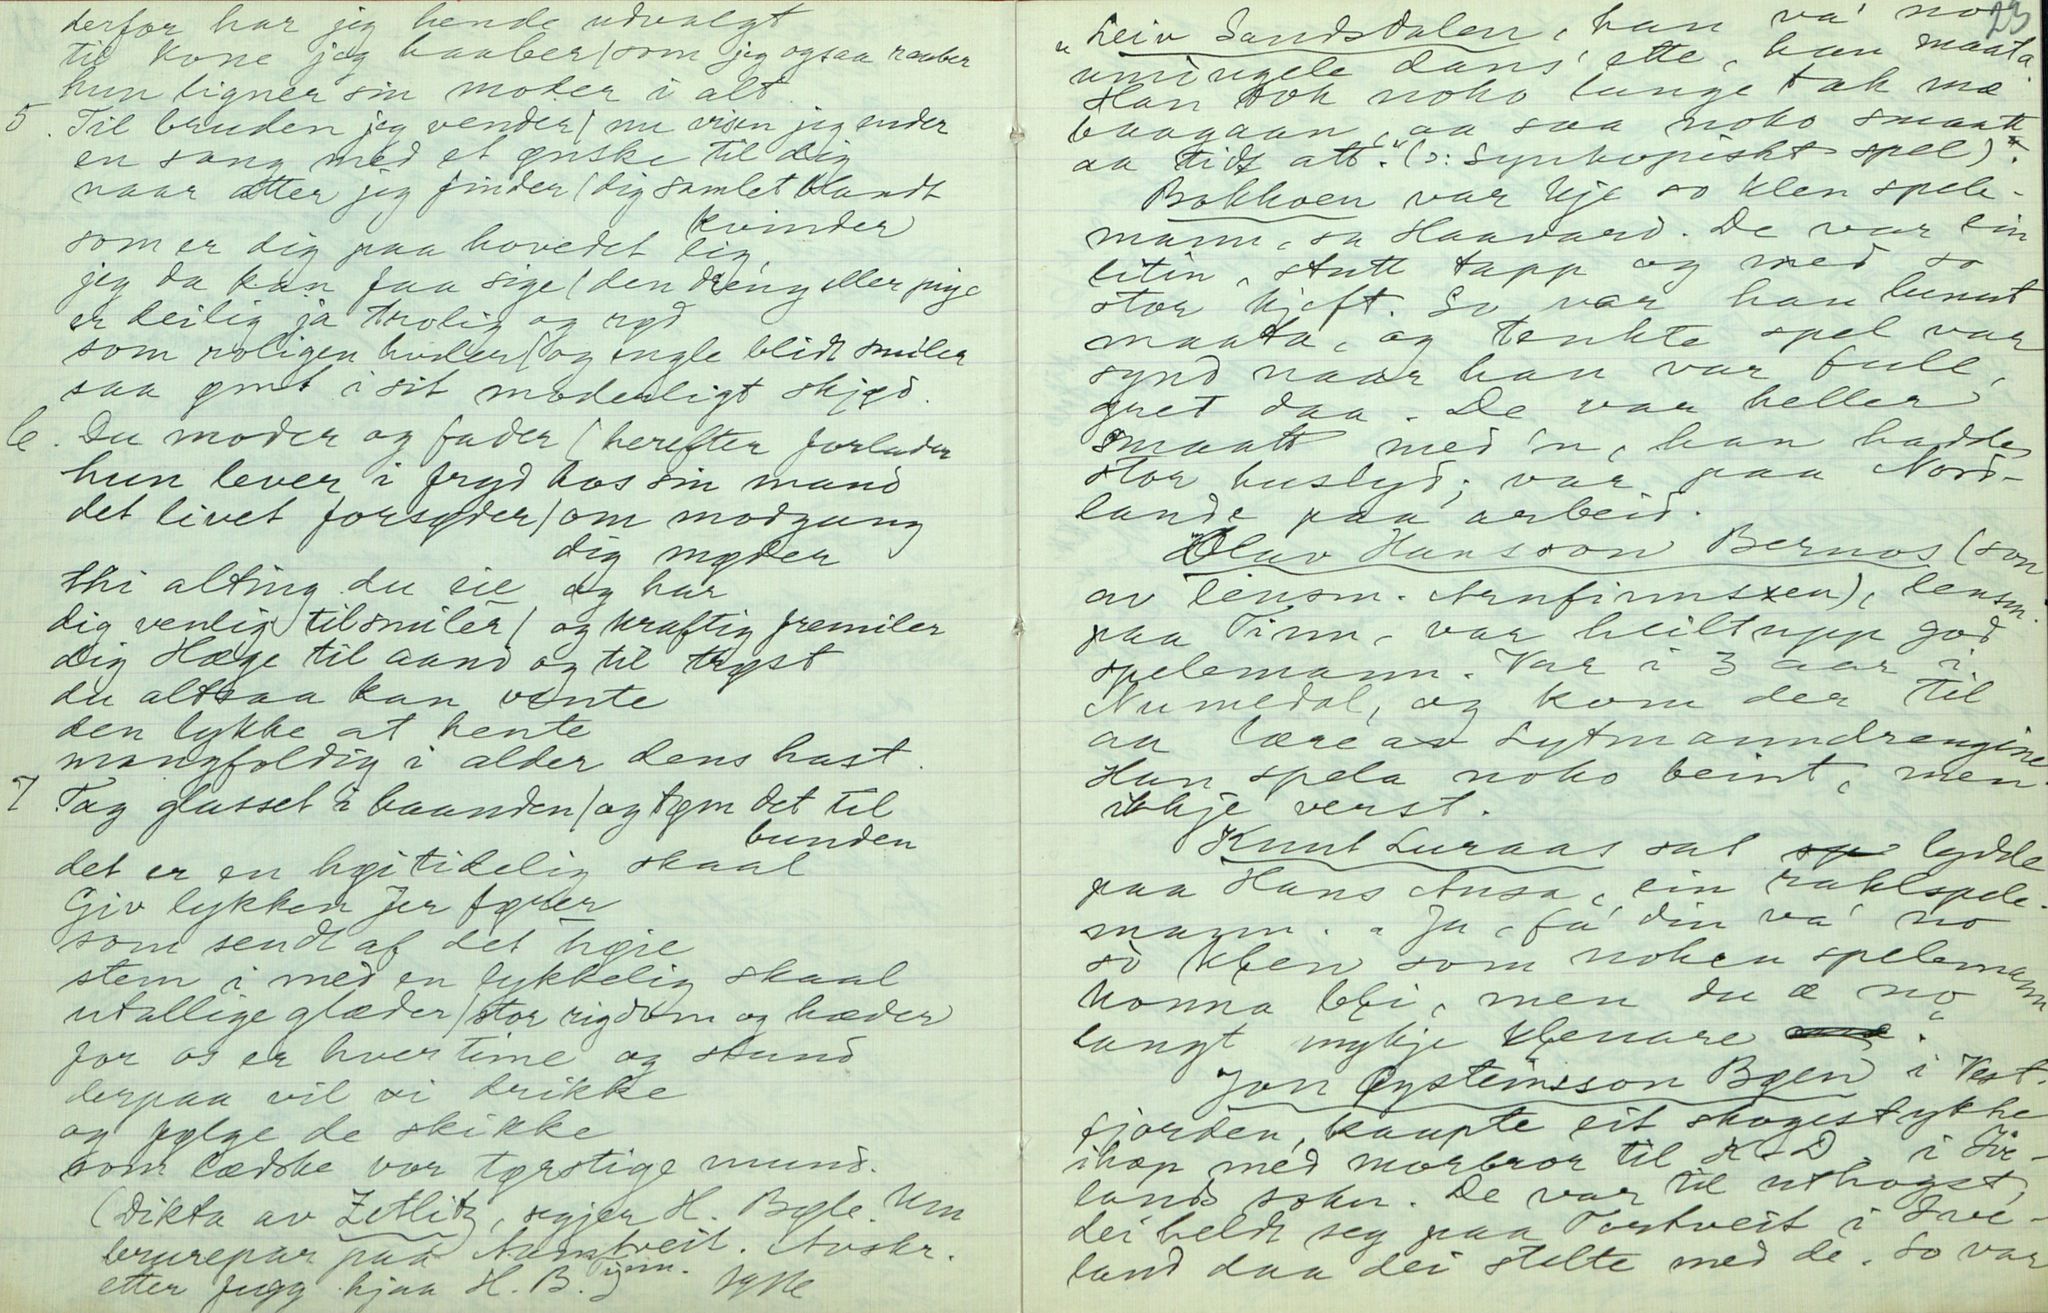 derfor har jeg hende udvalgt
til kone jeg haaber / som jeg ogsaa raaber
hun ligner sin moder i alt
5. Til bruden jeg vender / nu visen jeg ender
en sang med et ønske til dig
naar atter jeg finder / dig samlet blandt
kvinder
som er dig paa hovedet lig
jeg da kan faa sige / den dreng eller pige
er deilig ja trolig og rød
som roligen hviler / og engle blidt smiler
saa ømt i sit moderligt skjød.
6. Du moder og fader / herefter forlader
hun lever i fryd hos sin mand
det livet forsøder / om modgang
dig møder
thi alting du eie og har
dig venlig tilsmiler / og kraftig fremiler
dig Hæge til aand og til trøst
du altsaa kan vente
den lykke at hente
mangfoldig i alder dens hast.
7 Tag glasset i haanden / og tøm det til
bunden
det er en høitidelig skaal
Giv lykken Jer føier
som sendt af det høie
stem i med en lykkelig skaal
utallige glæder / stor rigdom og hæder
for os er hver time og stund
derpaa vil vi drikke
og følge de skikke
som lædske vor tørstige mund.
(Dikta av Zetlitz, segjer H. Bøle. Um
brurepar paa Aamtveit. Avskr.
etter fugg hjaa H. B.
23
"Leiv Sandsdalen, han va' no
umingele dans' ette, han maata.
Han tok noko lange tak mæ
baagaan, aa saa noko smaatt
aa tidt att." (ɔ: synkopiskt spel).
Bakkoen var kje so klen spele-
mann, sa Haavard. De var ein
liten, stutt tapp og med so
stor kjeft. So var han lunut
maata, og tenkte spel var
synd naar han var full,
gret daa. De var heller
smaatt med 'n, han hadde
stor huslyd; var paa Nord-
lande paa arbeid.
Olav Hansson Bernos (son
av lensm. Arnfinnsen), lensm.
paa Tinn, var heiltupp god
spelemann. Var i 3 aar i
Numedal, og kom der til
aa lære av Lytmanndrengine.
Han spela noko beint, men
ikkje verst.
Knut Luraas sat lydde
paa Hans Ansa, ein raklspele-
mann. "Ja, få din va' no
so klen som noken spelemann
konna bli, men du æ no
langt mykje klenare".
Jon Øysteinsson Bøen i Vest-
fjorden, kaupte eit skogestykke
ihop med morbror til K. D. i Hir-
lands sokn. De var til uthogst,
dei heldt seg paa Tortveit i Tve-
land daa dei stelte med de. So var